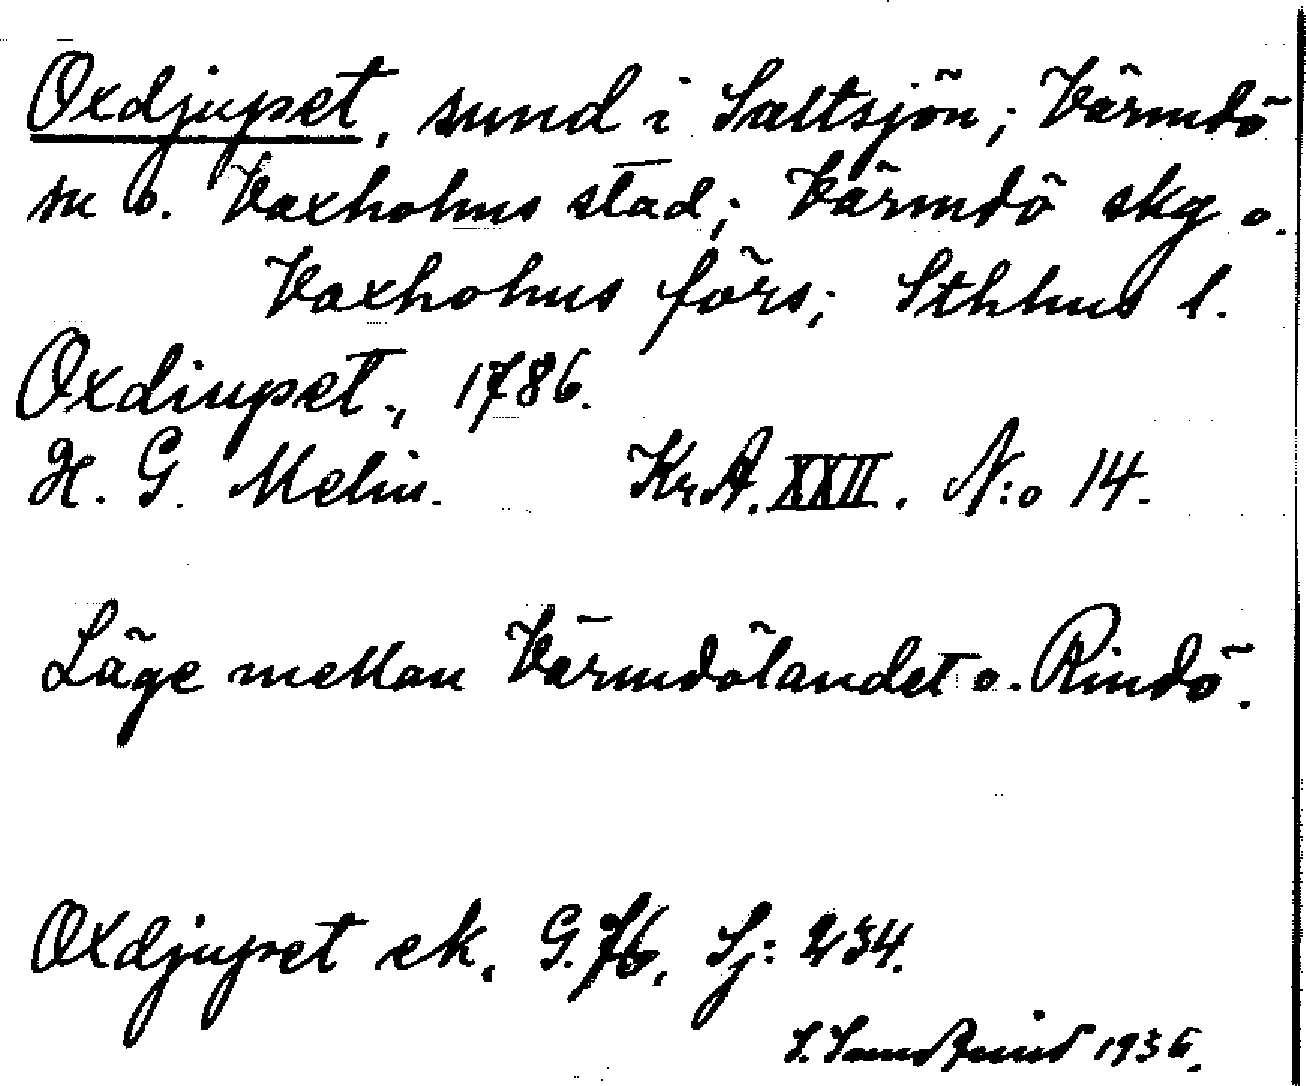 Oxdjupet, sund i Saltsjön; Värmdö
sn o. Vaxholms stad; Värmdö skg o.
Vaxholms förs; Sthlms l.
Oxdiupet., 1786.
H. G. Melin. Kr.A. XXII. N:o 14.
Läge mellan Värmdölandet o. Rindö.
Oxdjupet ek. G.76, Sj: 234.
1936.